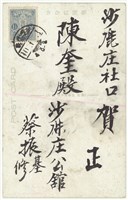 沙鹿庄社口
陳奎殿
賀正
沙鹿庄公館
蔡振基
修